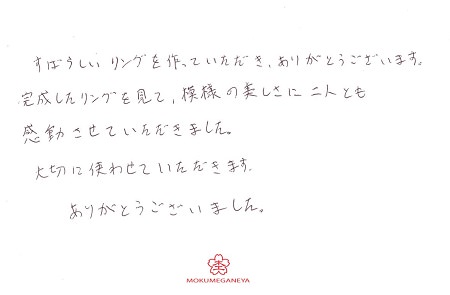 すばらしい リングを作っていただき、ありがとうございます。
完成したリングを見て、模様の美しさに二人とも
感動させていただきました。
大切に使わせていただきます。
ありがとうございました。
MOKUMEGANEYA